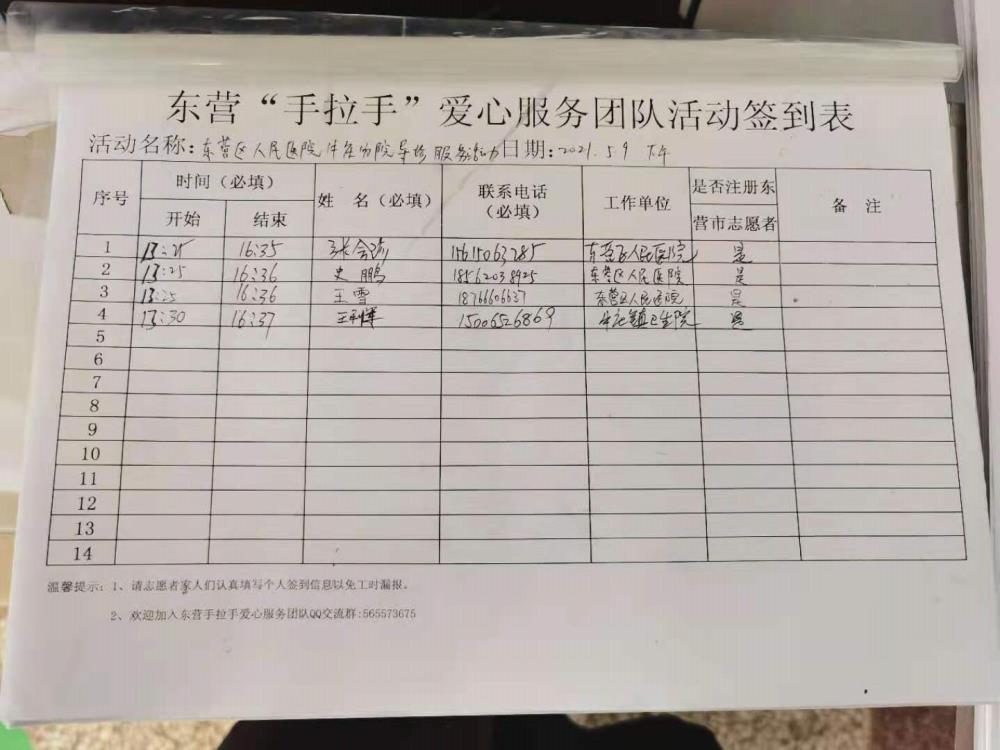 东营“手拉手”爱心服务团队活动签到表
活动名称：东营区人民医院 分院导诊服务活动 日期：2021.5.9 下午
序号 时间（必填） 姓 名（必填） 联系电话（必填） 工作单位 是否注册东营市志愿者 备 注
开始 结束
1 13:25 16:35 张会 15615063285 东营区人民医院 是
2 13:25 16:36 史鹏 18562038925 东营区人民医院 是
3 13:25 16:36 王雪 18766606637 东营区人民医院 是
4 13:30 16:37 王 15006526869 牛庄镇卫生院 是
5
6
7
8
9
10
11
12
13
14
温馨提示：1、请志愿者家人们认真填写个人签到信息以免工时漏报。
2、欢迎加入东营手拉手爱心服务团队QQ交流群:565573675